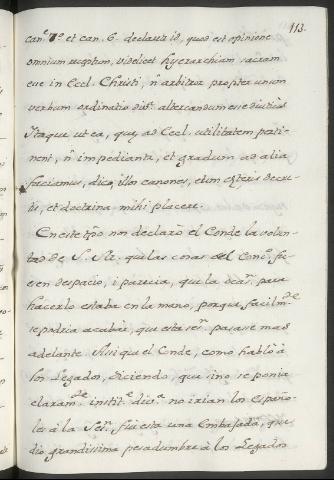 113.
can.e 7.o et can. 6. declarat id, quod est opinione
omnium receptum, videlicet hyerarchiam sacram
esse in Eccl. Christi, ñ arbitror propter unum
verbum ordinatio div.e altercandum esse diutius
Itaque ut ea, quæ ad Eccl. utilitatem perti-
nent, ñ impediantur, et gradum ad alia
faciamus, dico illos canones, cum cæteris decre-
tis, et doctrina mihi placere.
En este tpo non declaró el Conde la volun-
tad de S. M. que las cosas del Conc.o fu-
esen despacio, i parecia, que la ocas.n para
hacerlo estaba en la mano, porque facilm.te
se podria acabar, que esta ses.n pasase mas
adelante. Assi que el Conde, como habló à
los Legados, diciendo, que sino se ponia
claram.te instit.e div.a no irian los Españo-
les à la Ses.n fué esta una Embajada, que
dio grandissima pesadumbre à los Legados